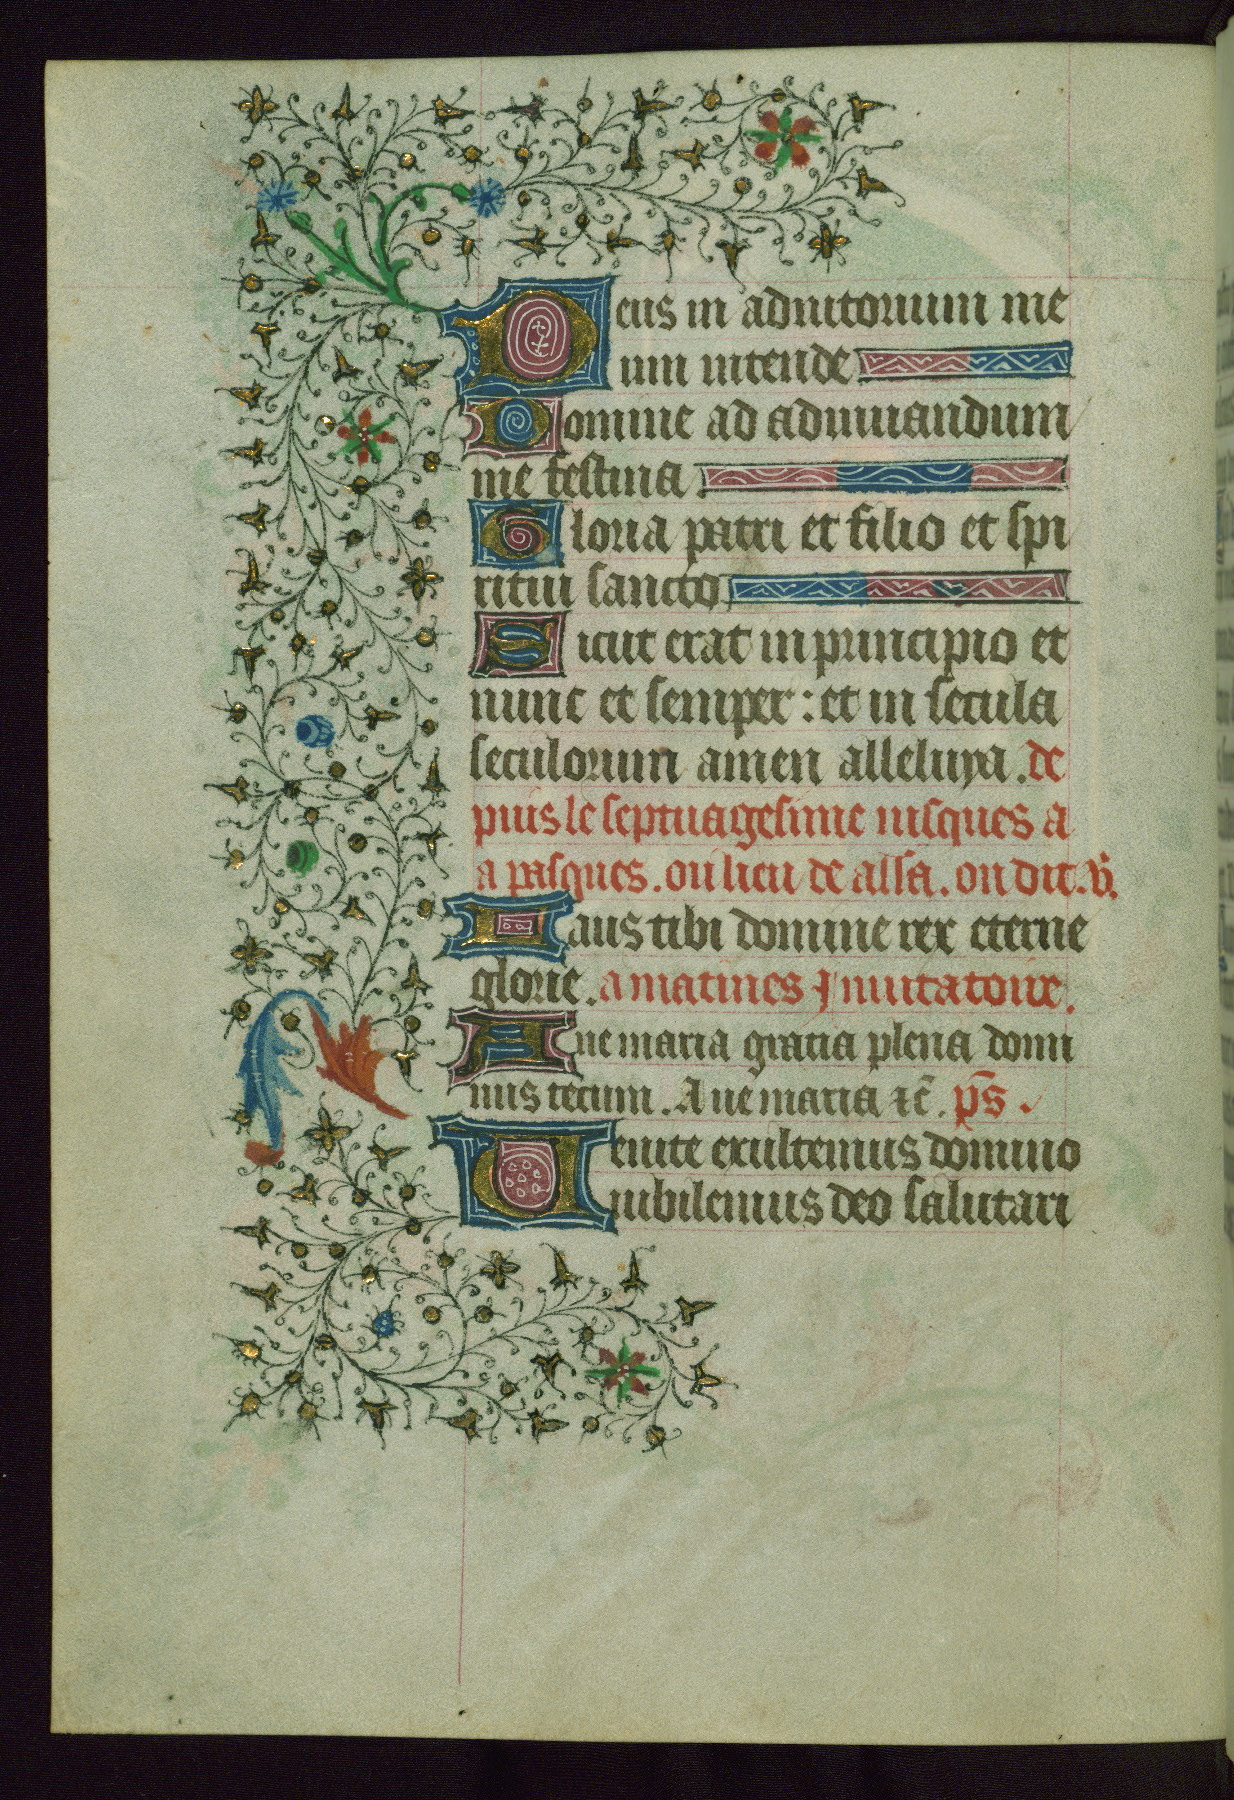 Deus in adiutorium me
um intende
Domine ad adiuuandum
me festina
Gloria patri et filio et spi
ritui sancto
Sicut erat in principio et
nunc et semper : et in secula
seculorum amen alleluya . de
puis le septuagesime iusques a
a pasques . ou lieu de alla . on dit . v̄.
Laus tibi domine rex eterne
glorie . a matines Inuitatoire .
Aue maria gratia plena domi
nus tecum . Aue maria ⁊c̄ . p̄s .
Uenite exultemus domino
iubilemus deo salutari